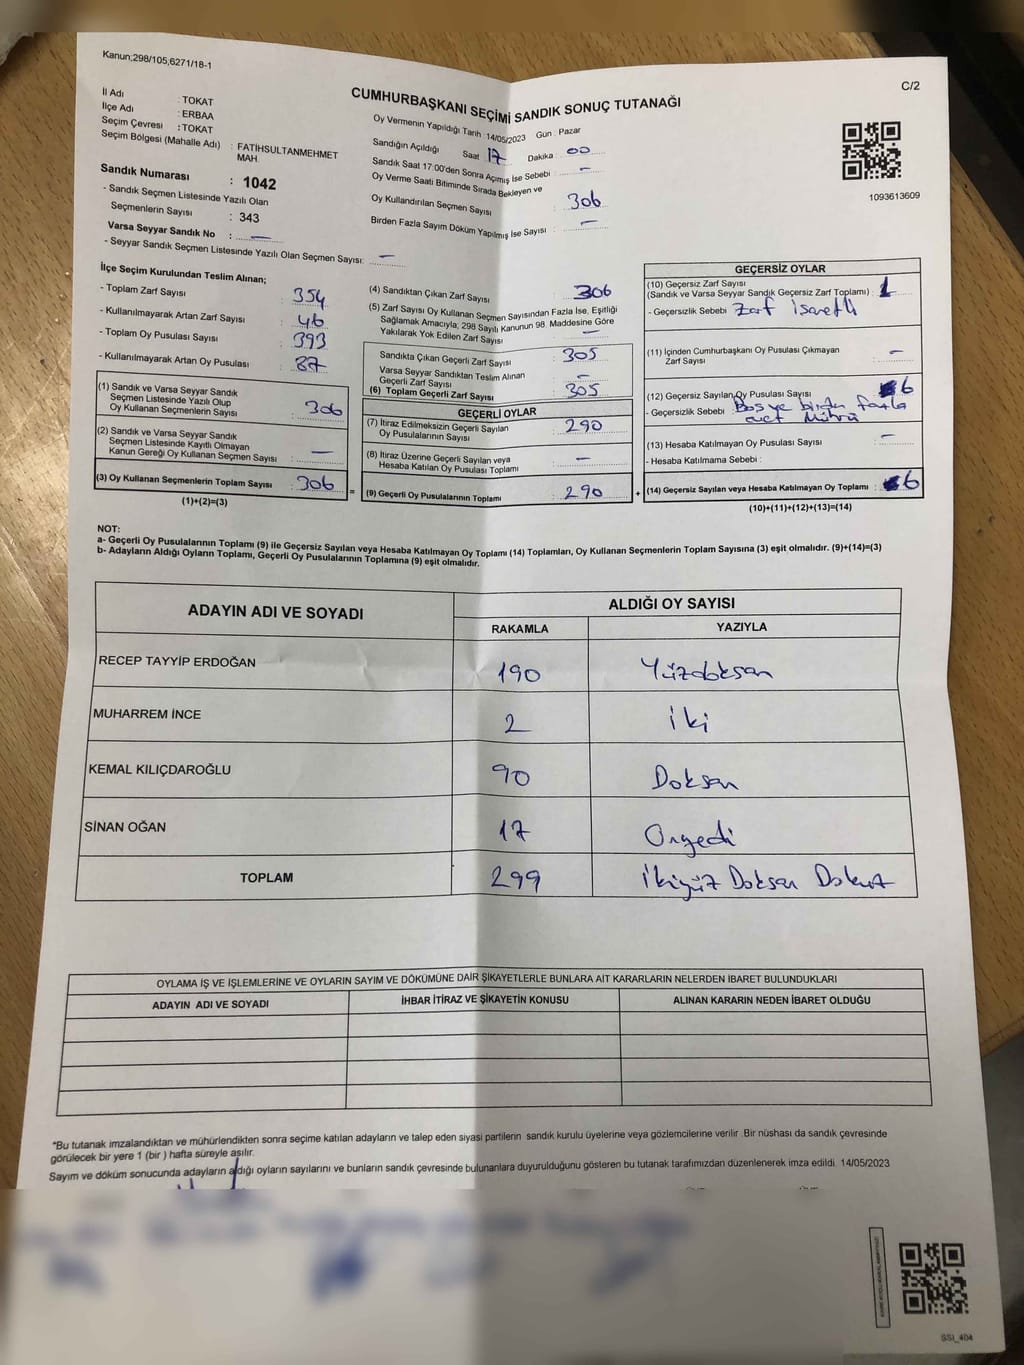 Kanun;298/105,6271/18-1
C/2
CUMHURBAŞKANI SEÇİMİ SANDIK SONUÇ TUTANAĞI
İl Adı : TOKAT
İlçe Adı : ERBAA
Seçim Çevresi : TOKAT
Seçim Bölgesi (Mahalle Adı) : FATİHSULTANMEHMET MAH.
Sandık Numarası : 1042
- Sandık Seçmen Listesinde Yazılı Olan
Seçmenlerin Sayısı : 343
Varsa Seyyar Sandık No : —
- Seyyar Sandık Seçmen Listesinde Yazılı Olan Seçmen Sayısı: —
Oy Vermenin Yapıldığı Tarih 14/05/2023 Gün : Pazar
Sandığın Açıldığı Saat 17 Dakika : 00
Sandık Saat 17:00'den Sonra Açımış İse Sebebi : —
Oy Verme Saati Bitiminde Sırada Bekleyen ve
Oy Kullandırılan Seçmen Sayısı : 306
Birden Fazla Sayım Döküm Yapılmış İse Sayısı : —
1093613609
İlçe Seçim Kurulundan Teslim Alınan;
- Toplam Zarf Sayısı : 354
- Kullanılmayarak Artan Zarf Sayısı : 46
- Toplam Oy Pusulası Sayısı : 393
- Kullanılmayarak Artan Oy Pusulası : 87
(1) Sandık ve Varsa Seyyar Sandık
Seçmen Listesinde Yazılı Olup
Oy Kullanan Seçmenlerin Sayısı : 306
(2) Sandık ve Varsa Seyyar Sandık
Seçmen Listesinde Kayıtlı Olmayan
Kanun Gereği Oy Kullanan Seçmen Sayısı : —
(3) Oy Kullanan Seçmenlerin Toplam Sayısı : 306
(1)+(2)=(3)
(4) Sandıktan Çıkan Zarf Sayısı : 306
(5) Zarf Sayısı Oy Kullanan Seçmen Sayısından Fazla İse, Eşitliği
Sağlamak Amacıyla; 298 Sayılı Kanunun 98. Maddesine Göre
Yakılarak Yok Edilen Zarf Sayısı : —
Sandıkta Çıkan Geçerli Zarf Sayısı : 305
Varsa Seyyar Sandıktan Teslim Alınan
Geçerli Zarf Sayısı : —
(6) Toplam Geçerli Zarf Sayısı : 305
GEÇERLİ OYLAR
(7) İtiraz Edilmeksizin Geçerli Sayılan
Oy Pusulalarının Sayısı : 290
(8) İtiraz Üzerine Geçerli Sayılan veya
Hesaba Katılan Oy Pusulası Toplamı : —
= (9) Geçerli Oy Pusulalarının Toplamı : 290 +
GEÇERSİZ OYLAR
(10) Geçersiz Zarf Sayısı
(Sandık ve Varsa Seyyar Sandık Geçersiz Zarf Toplamı) : 1
- Geçersizlik Sebebi Zarf işaretli
(11) İçinden Cumhurbaşkanı Oy Pusulası Çıkmayan
Zarf Sayısı : —
(12) Geçersiz Sayılan Oy Pusulası Sayısı : 6
- Geçersizlik Sebebi : Boş ve birden fazla
evet Mührü
(13) Hesaba Katılmayan Oy Pusulası Sayısı : —
- Hesaba Katılmama Sebebi :
(14) Geçersiz Sayılan veya Hesaba Katılmayan Oy Toplamı : 6
(10)+(11)+(12)+(13)=(14)
NOT:
a- Geçerli Oy Pusulalarının Toplamı (9) ile Geçersiz Sayılan veya Hesaba Katılmayan Oy Toplamı (14) Toplamları, Oy Kullanan Seçmenlerin Toplam Sayısına (3) eşit olmalıdır. (9)+(14)=(3)
b- Adayların Aldığı Oyların Toplamı, Geçerli Oy Pusulalarının Toplamına (9) eşit olmalıdır.
ADAYIN ADI VE SOYADI
ALDIĞI OY SAYISI
RAKAMLA YAZIYLA
RECEP TAYYİP ERDOĞAN 190 Yüzdoksan
MUHARREM İNCE 2 iki
KEMAL KILIÇDAROĞLU 90 Doksan
SİNAN OĞAN 17 Onyedi
TOPLAM 299 ikiyüz Doksan Dokuz
OYLAMA İŞ VE İŞLEMLERİNE VE OYLARIN SAYIM VE DÖKÜMÜNE DAİR ŞİKAYETLERLE BUNLARA AİT KARARLARIN NELERDEN İBARET BULUNDUKLARI
ADAYIN ADI VE SOYADI İHBAR İTİRAZ VE ŞİKAYETİN KONUSU ALINAN KARARIN NEDEN İBARET OLDUĞU
*Bu tutanak imzalandıktan ve mühürlendikten sonra seçime katılan adayların ve talep eden siyasi partilerin sandık kurulu üyelerine veya gözlemcilerine verilir. Bir nüshası da sandık çevresinde
görülecek bir yere 1 (bir ) hafta süreyle asılır.
Sayım ve döküm sonucunda adayların aldığı oyların sayılarını ve bunların sandık çevresinde bulunanlara duyurulduğunu gösteren bu tutanak tarafımızdan düzenlenerek imza edildi. 14/05/2023
SSI_404